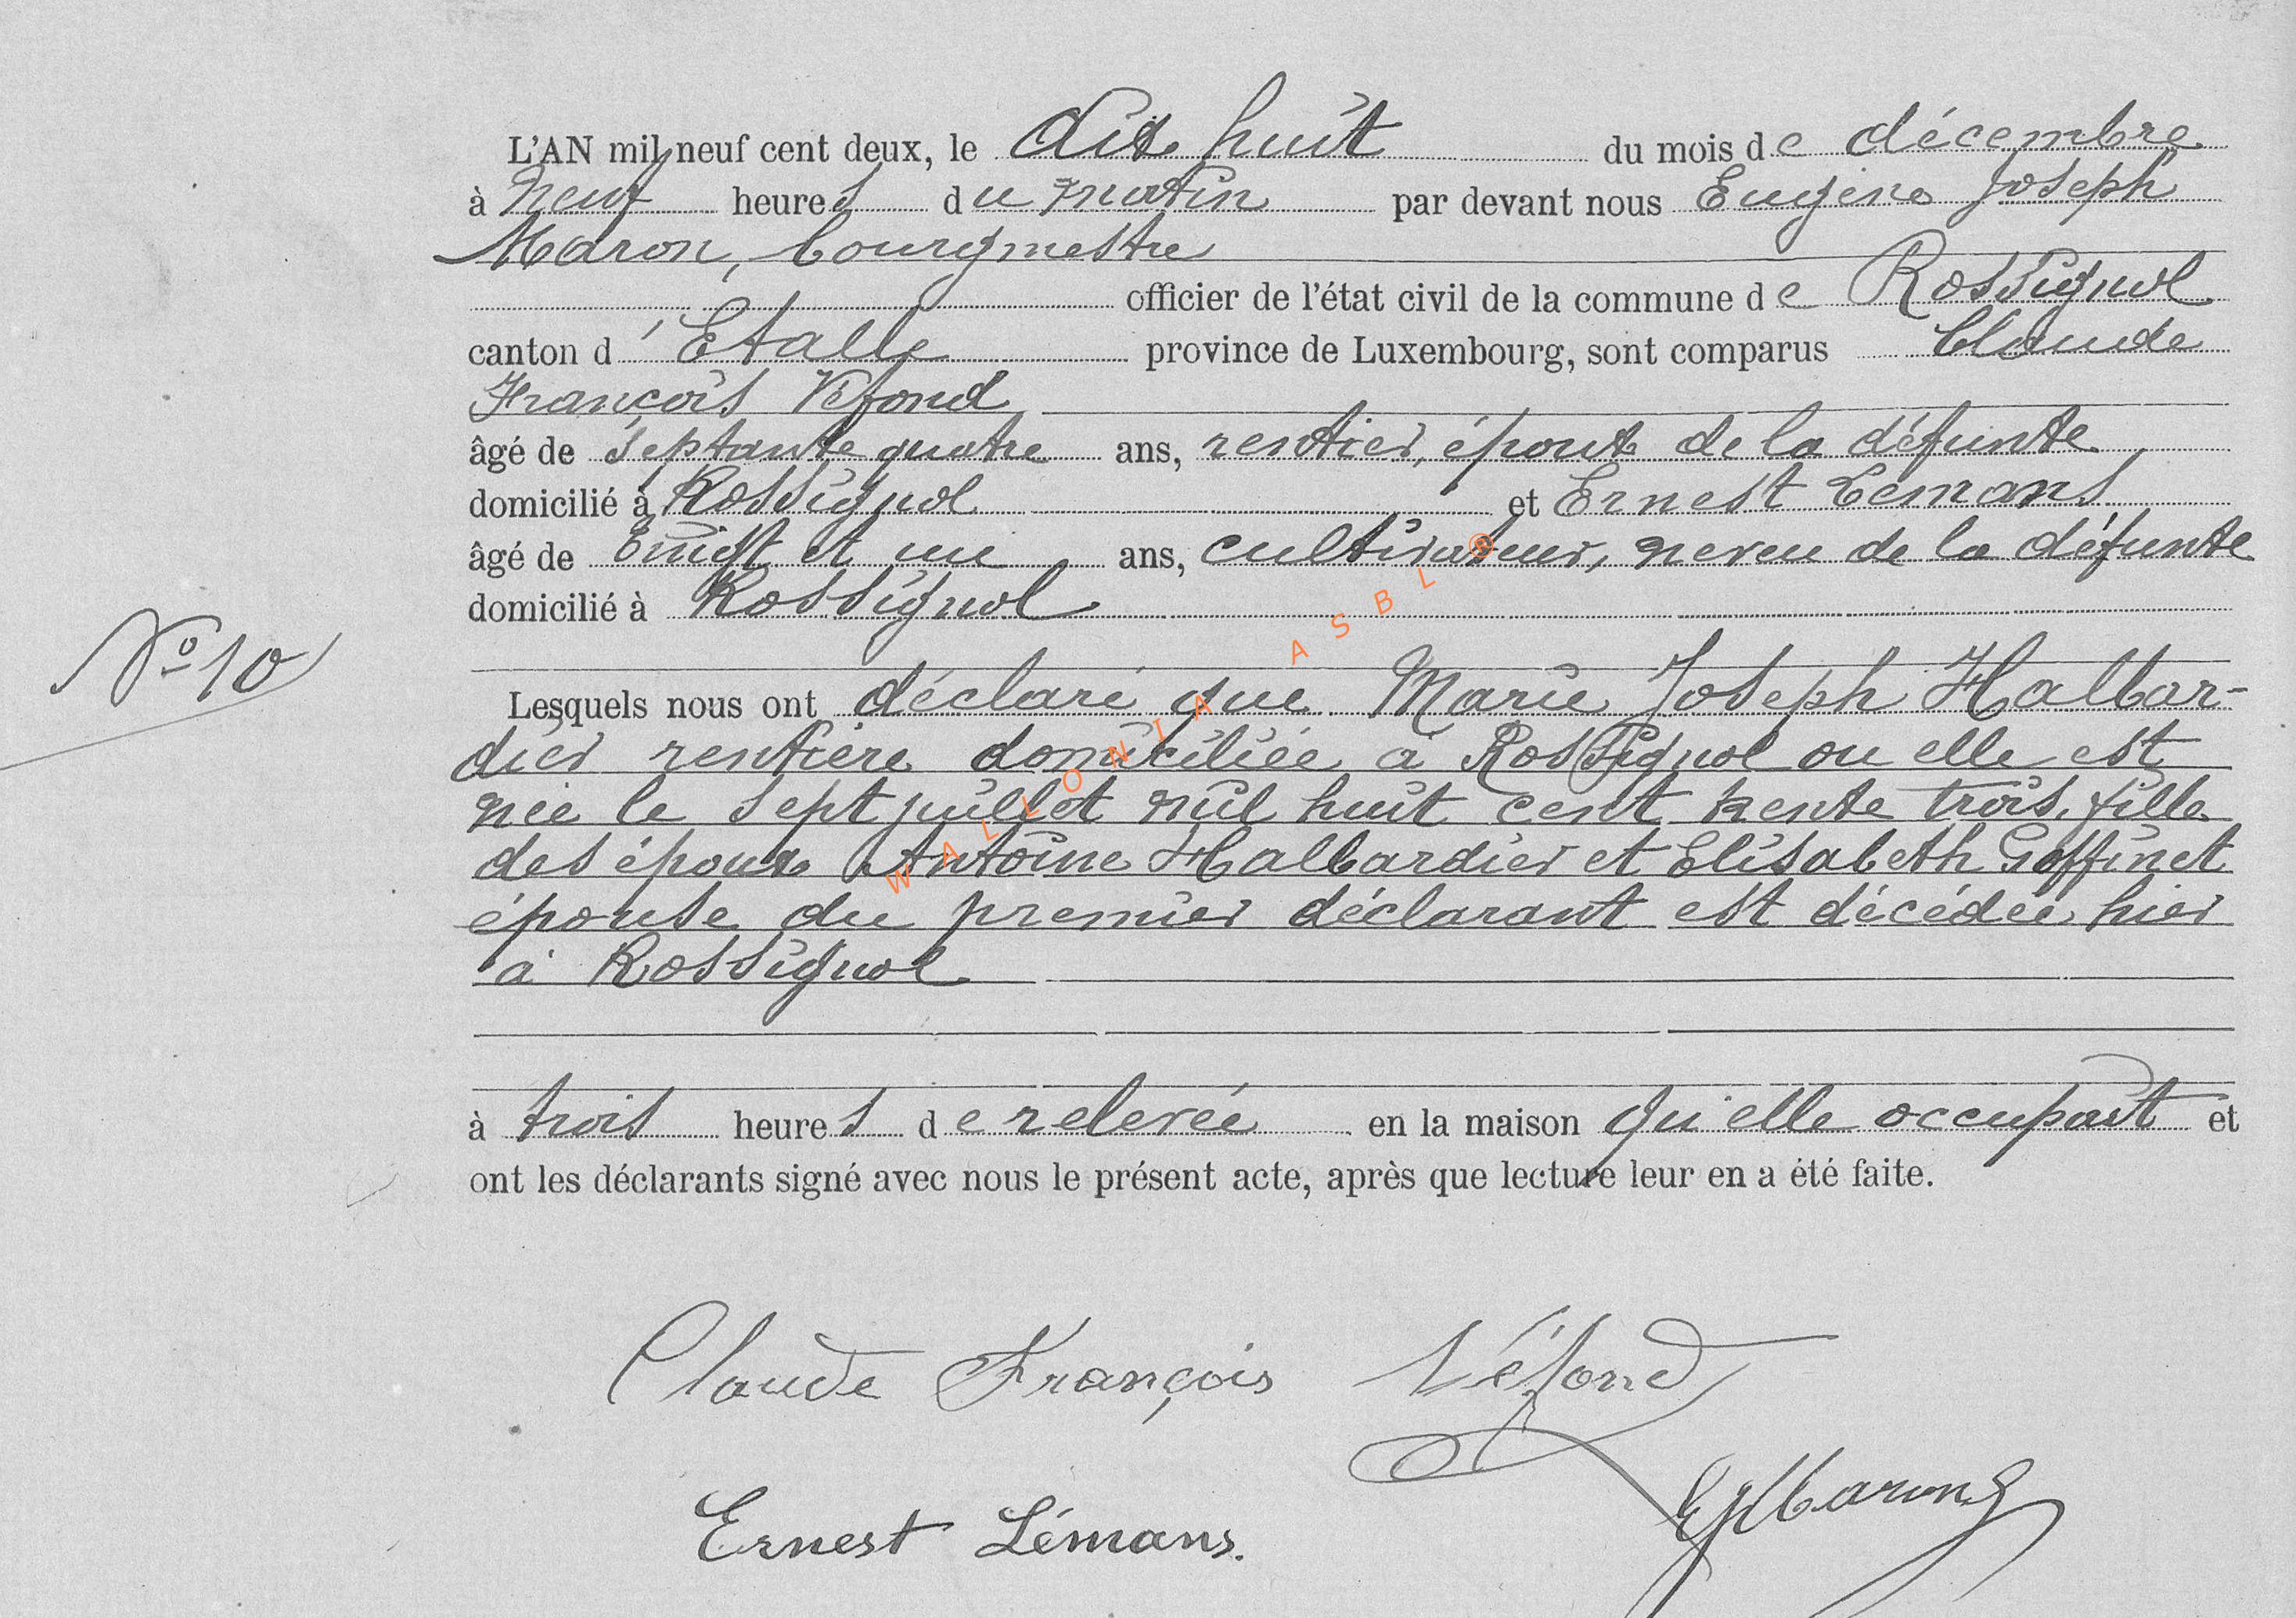 L'AN mil neuf cent deux, le dix huit du mois de décembre
à neuf heures du matin par devant nous Eugène Joseph
Maron, bourgmestre
officier de l'état civil de la commune de Rossignol
canton d'Etalle province de Luxembourg, sont comparus Claude
François Véfond
âgé de septante quatre ans, rentier, époux de la défunte
domicilié à Rossignol et Ernest Lemans
âgé de vingt et un ans, cultivateur, neveu de la défunte
domicilié à Rossignol
Nº 10
Lesquels nous ont déclaré que Marie Joseph Halbar-
dier rentière domiciliée à Rossignol ou elle est
née le sept juillet mil huit cent trente trois, fille
des époux Antoine Halbardier et Elisabeth Goffinet
épouse du premier déclarant est décédée hier
à Rossignol
à trois heures de relevée en la maison qu'elle occupait et
ont les déclarants signé avec nous le présent acte, après que lecture leur en a été faite.
Claude François Véfond
EJMaron
Ernest Lémans.
WALLONIA ASBL ®